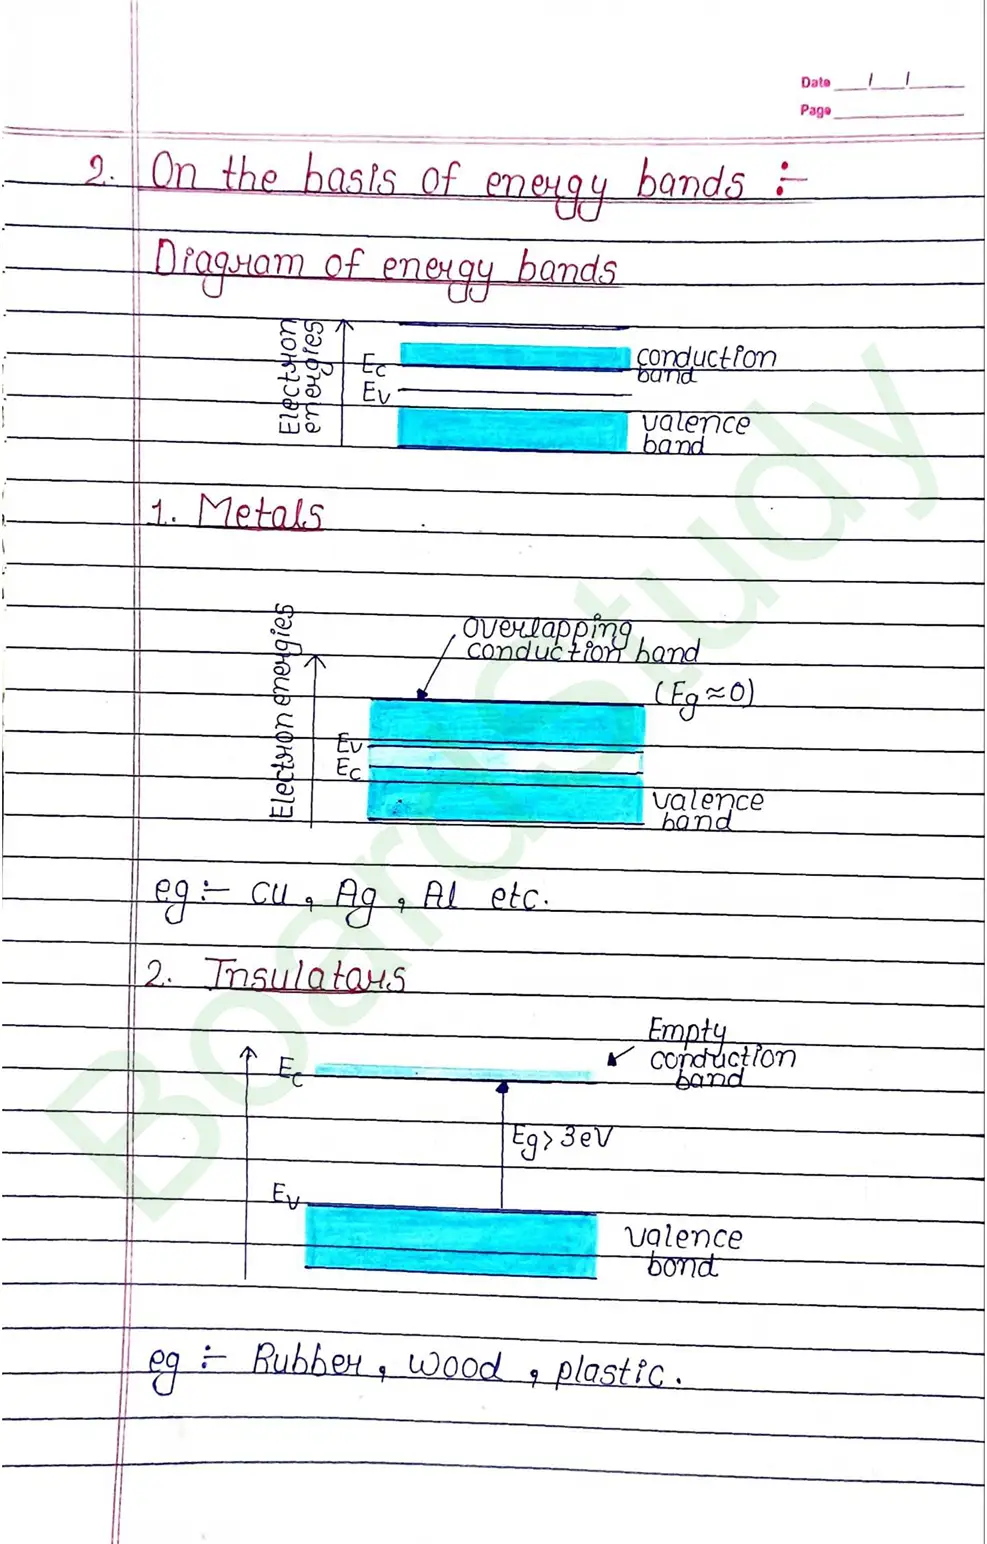 Date / /
Page
2. On the basis of energy bands :-
Diagram of energy bands
Electron
energies
Ec
Ev
conduction
band
valence
band
1. Metals
Electron energies
overlapping
conduction band
(Eg ≈ 0)
Ev
Ec
valence
band
eg :- Cu, Ag, Al etc.
2. Insulators
Empty
conduction
band
Ec
Eg > 3eV
Ev
valence
bond
eg :- Rubber, wood, plastic.
BoardStudy